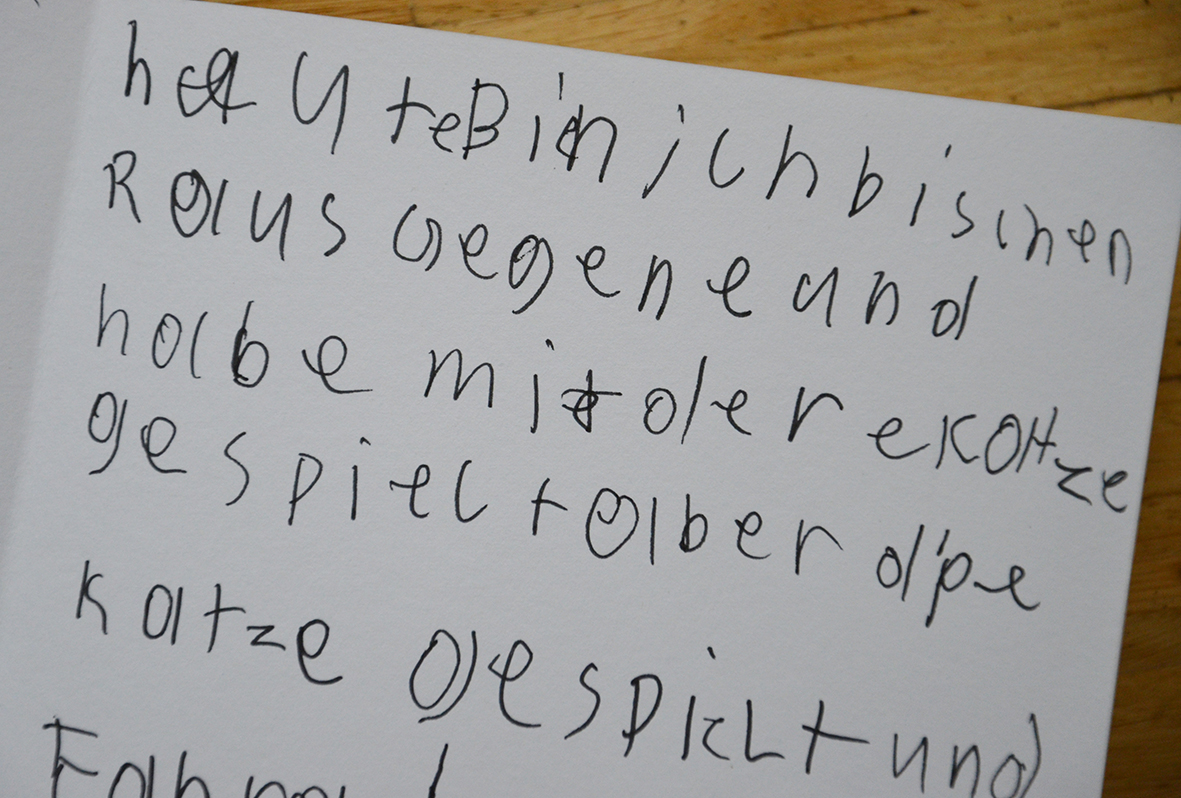 heuteBin ich bischen
Raus gegene und
habe mit der ekatze
gespielt aber die
katze gespielt und